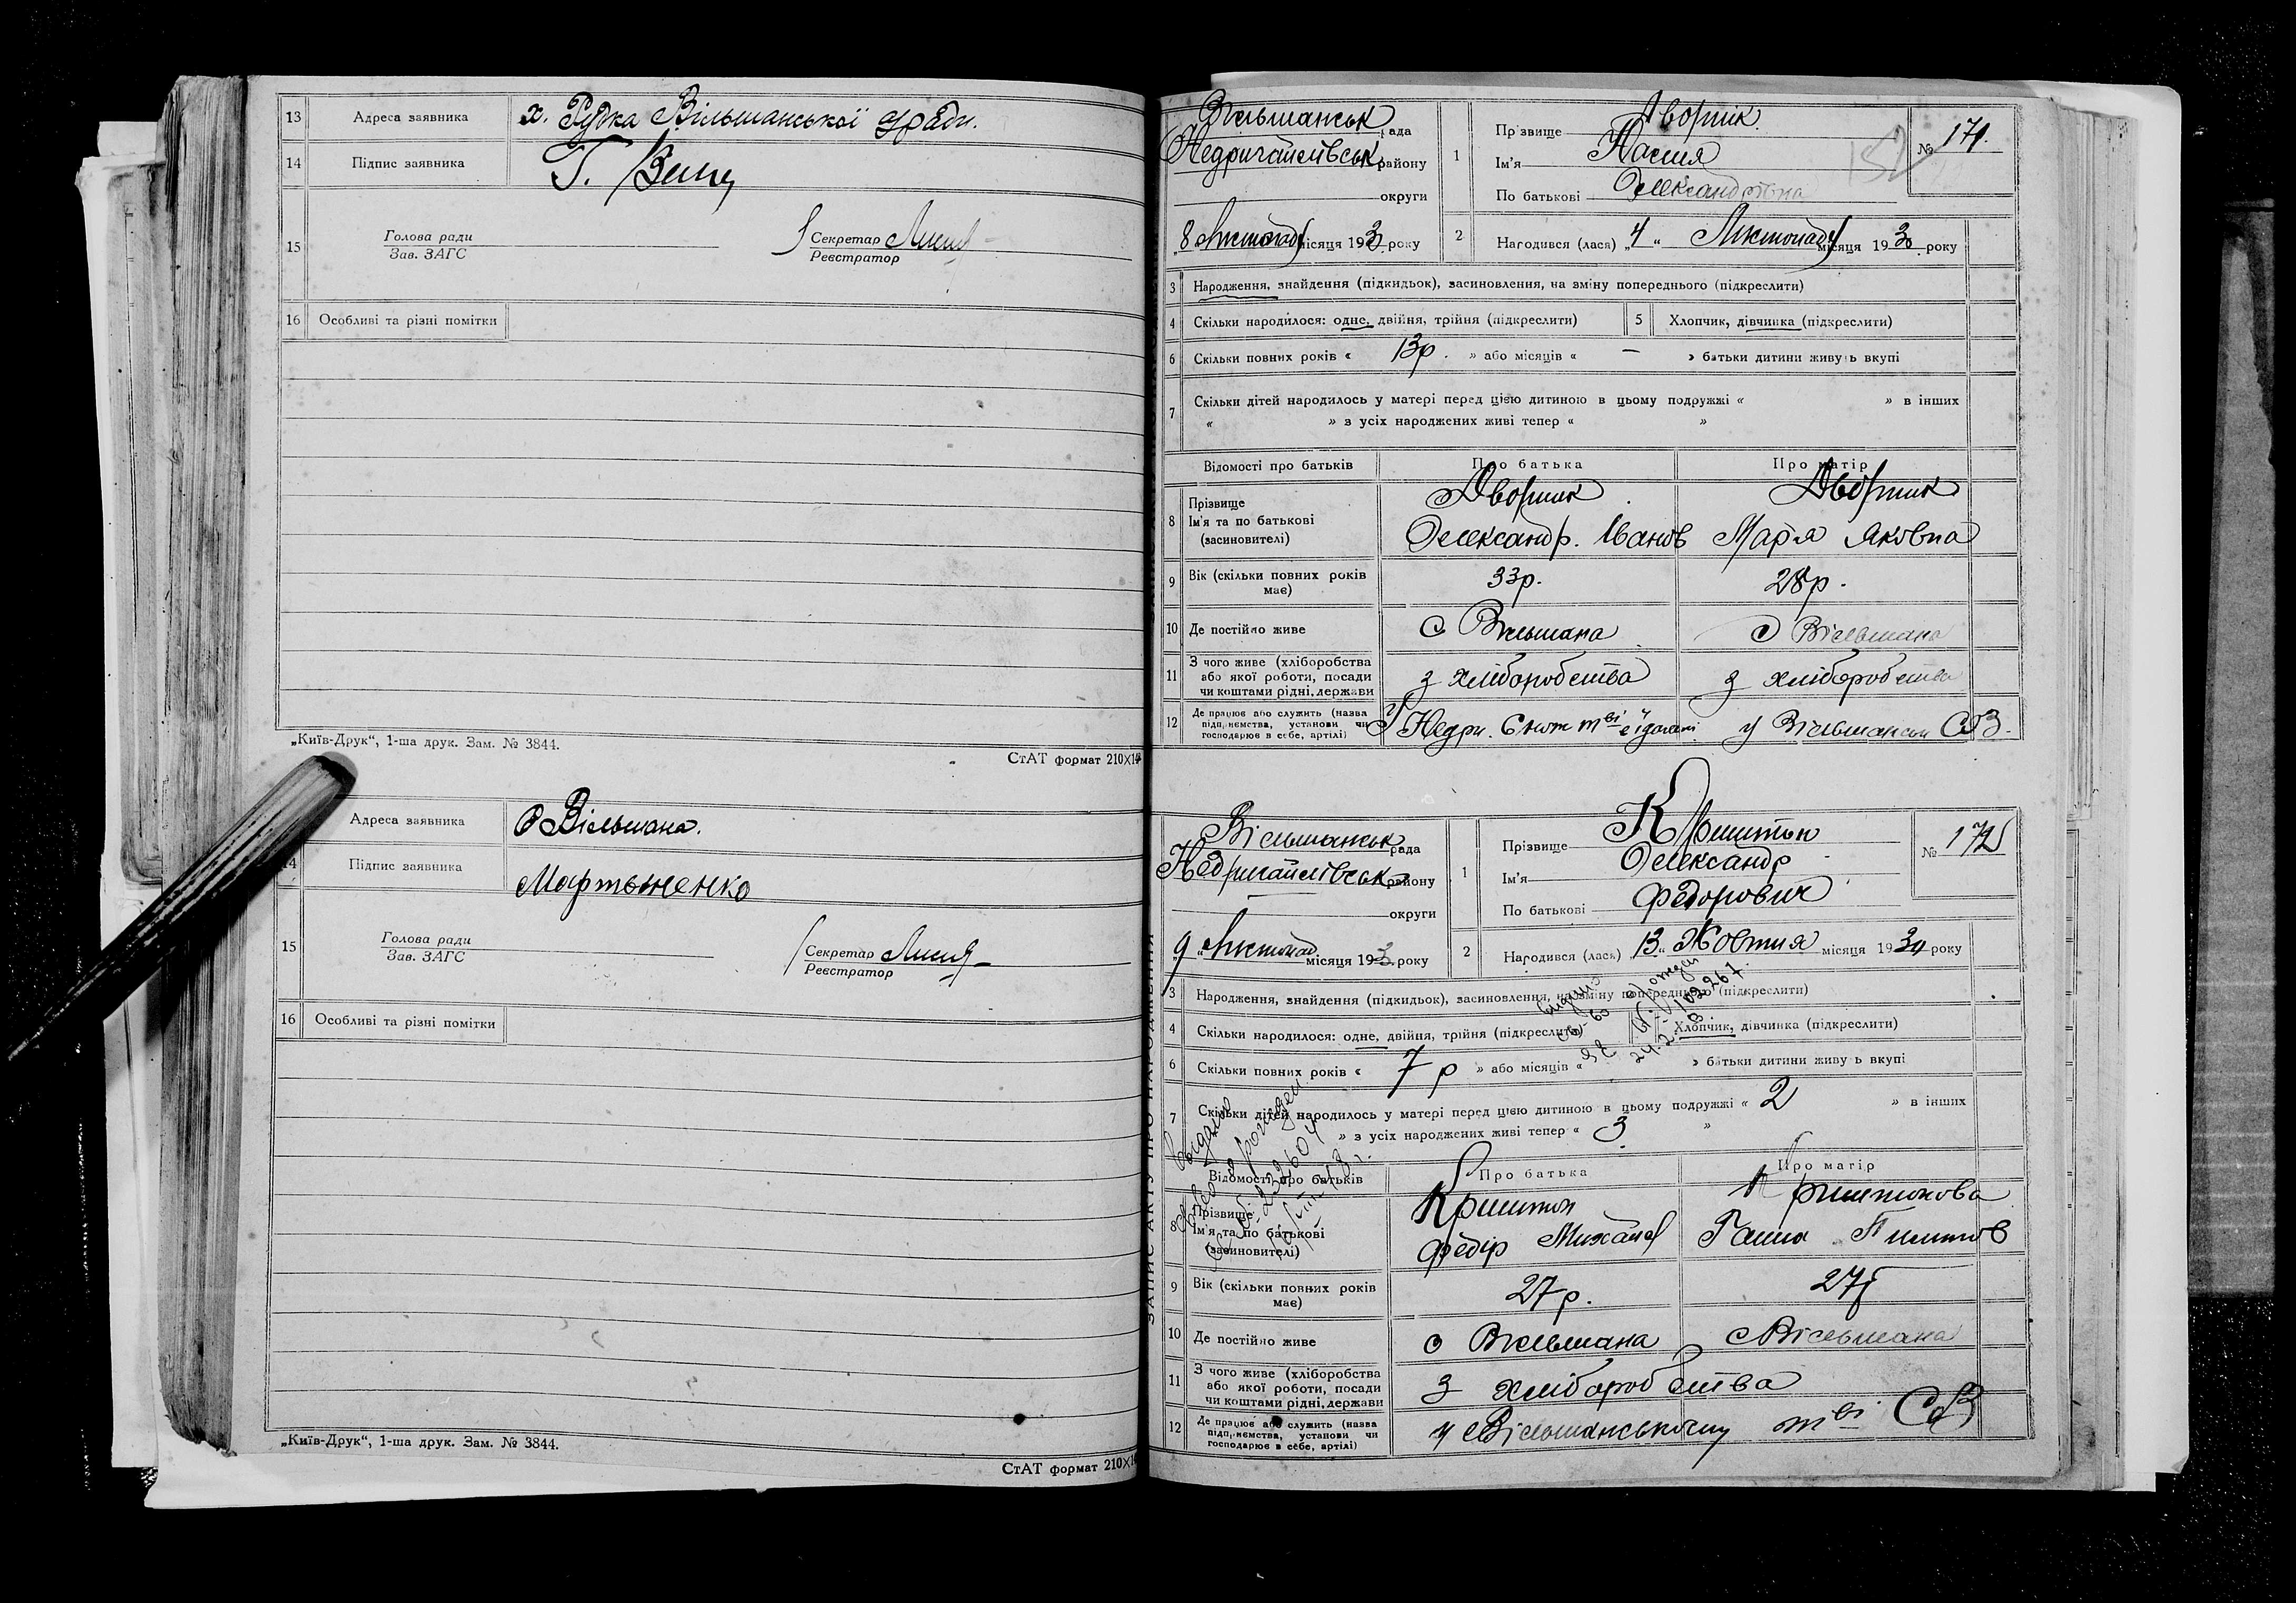 13 Адреса заявника х. Рудка Вільшанської с/ради.
14 Підпис заявника Г.
15 Голова ради
Зав. ЗАГС
Секретар
Реєстратор
16 Особливі та різні помітки
„Київ-Друк“, 1-ша друк. Зам. № 3844.
СтАТ формат 210×14
Адреса заявника с Вільшана.
14 Підпис заявника Мартыненко
15 Голова ради
Зав. ЗАГС
Секретар
Реєстратор
16 Особливі та різні помітки
„Київ-Друк“, 1-ша друк. Зам. № 3844.
СтАТ формат 210×14
ЗАПИС АКТУ ПРО НАРОДЖЕННЯ
Вільшанськ рада
Недригайлівськ району
округи
„8 Листопаду місяця 1930 року
1 Прізвище Дворник
Ім'я Настя
По батькові Олександрівна
№ 171.
152
2 Народився (лася) „4“ Листопаду місяця 1930 року
3 Народження, знайдення (підкидьок), засиновлення, на зміну попереднього (підкреслити)
4 Скільки народилося: одне, двійня, трійня (підкреслити) 5 Хлопчик, дівчинка (підкреслити)
6 Скільки повних років « 13р. » або місяців « — » батьки дитини живуть вкупі
7 Скільки дітей народилось у матері перед цією дитиною в цьому подружжі « » в інших
« » з усіх народжених живі тепер « »
Відомості про батьків Про батька Про матір
8 Прізвище Дворник Дворник
Ім'я та по батькові Олександр. Іванов Марія Яковна
(засиновителі)
9 Вік (скільки повних років має) 33р. 28р.
10 Де постійно живе с Вільшана с Вільшана
11 З чого живе (хліборобства або якої роботи, посади чи коштами рідні, держави з хліборобства з хліборобства
12 Де працює або служить (назва підприємства, установи чи господарює в себе, артілі) У Недри. у Вільшанськ СОЗ.
Вільшанськ рада
Недригайлівськ району
округи
„9“ Листопад місяця 193 року
1 Прізвище
Ім'я Олександр
По батькові Федорович
№ 172
2 Народився (лася) „13“ Жовтня місяця 1930 року
3 Народження, знайдення (підкидьок), засиновлення, на зміну попереднього (підкреслити)
4 Скільки народилося: одне, двійня, трійня (підкреслити) Хлопчик, дівчинка (підкреслити)
6 Скільки повних років « 7 р » або місяців « » батьки дитини живуть вкупі
7 Скільки дітей народилось у матері перед цією дитиною в цьому подружжі « 2 » в інших
» з усіх народжених живі тепер « 3 »
Відомості про батьків Про батька Про матір
8 Прізвище
Ім'я та по батькові Федір Михайл Ганна Пилипов
(засиновителі)
9 Вік (скільки повних років має) 27р. 27р
10 Де постійно живе с Вільшана с Вільшана
11 З чого живе (хліборобства або якої роботи, посади чи коштами рідні, держави з хліборобства
12 Де працює або служить (назва підприємства, установи чи господарює в себе, артілі) у Вільшанському т-ві СОЗ